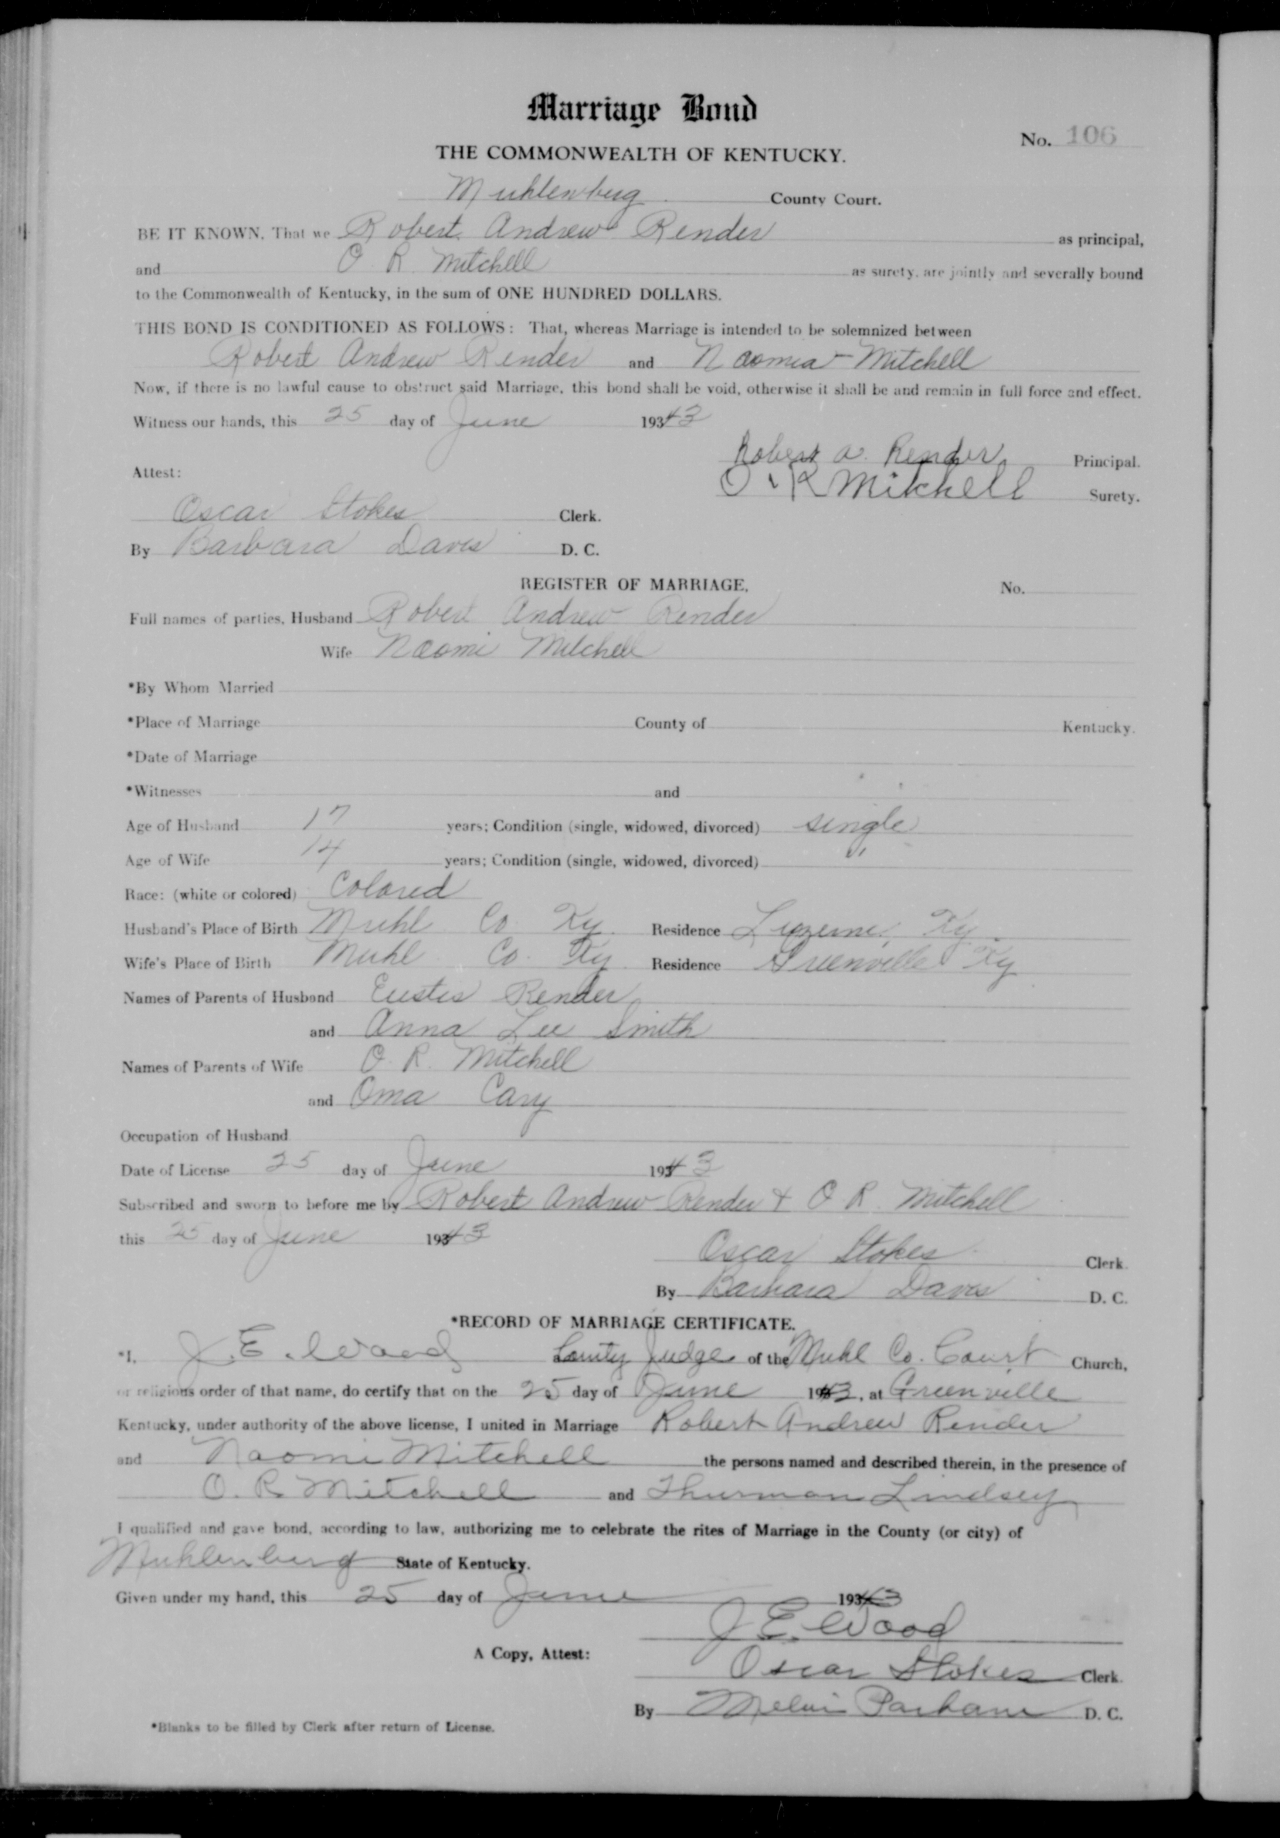 Marriage Bond
No. 106
THE COMMONWEALTH OF KENTUCKY.
Muhlenberg County Court.
BE IT KNOWN, That we Robert Andrew Render as principal,
and O. R. Mitchell as surety, are jointly and severally bound
to the Commonwealth of Kentucky, in the sum of ONE HUNDRED DOLLARS.
THIS BOND IS CONDITIONED AS FOLLOWS: That, whereas Marriage is intended to be solemnized between
Robert Andrew Render and Naomia Mitchell
Now, if there is no lawful cause to obstruct said Marriage, this bond shall be void, otherwise it shall be and remain in full force and effect.
Witness our hands, this 25 day of June 1943
Robert A. Render Principal.
Attest:
O. R Mitchell Surety.
Oscar Stokes Clerk.
By Barbara Davis D. C.
REGISTER OF MARRIAGE, No.
Full names of parties, Husband Robert Andrew Render
Wife Naomi Mitchell
*By Whom Married
*Place of Marriage County of Kentucky.
*Date of Marriage
*Witnesses and
Age of Husband 17 years; Condition (single, widowed, divorced) single
Age of Wife 14 years; Condition (single, widowed, divorced) "
Race: (white or colored) Colored
Husband's Place of Birth Muhl Co. Ky. Residence Luzerne, Ky.
Wife's Place of Birth Muhl Co. Ky Residence Greenville Ky
Names of Parents of Husband Eustis Render
and Anna Lee Smith
Names of Parents of Wife O. R. Mitchell
and Oma Cary
Occupation of Husband
Date of License 25 day of June 1943
Subscribed and sworn to before me by Robert Andrew Render & O. R. Mitchell
this 25 day of June 1943
Oscar Stokes Clerk.
By Barbara Davis D. C.
*RECORD OF MARRIAGE CERTIFICATE.
*I, J. E. Wood County Judge of the Muhl Co. Court Church,
or religious order of that name, do certify that on the 25 day of June 1943, at Greenville
Kentucky, under authority of the above license, I united in Marriage Robert Andrew Render
and Naomi Mitchell the persons named and described therein, in the presence of
O. R. Mitchell and Thurman Lindsey
I qualified and gave bond, according to law, authorizing me to celebrate the rites of Marriage in the County (or city) of
Muhlenberg State of Kentucky.
Given under my hand, this 25 day of June 1943
J. E. Wood
A Copy, Attest:
Oscar Stokes Clerk.
By Melvin Parham D. C.
*Blanks to be filled by Clerk after return of License.